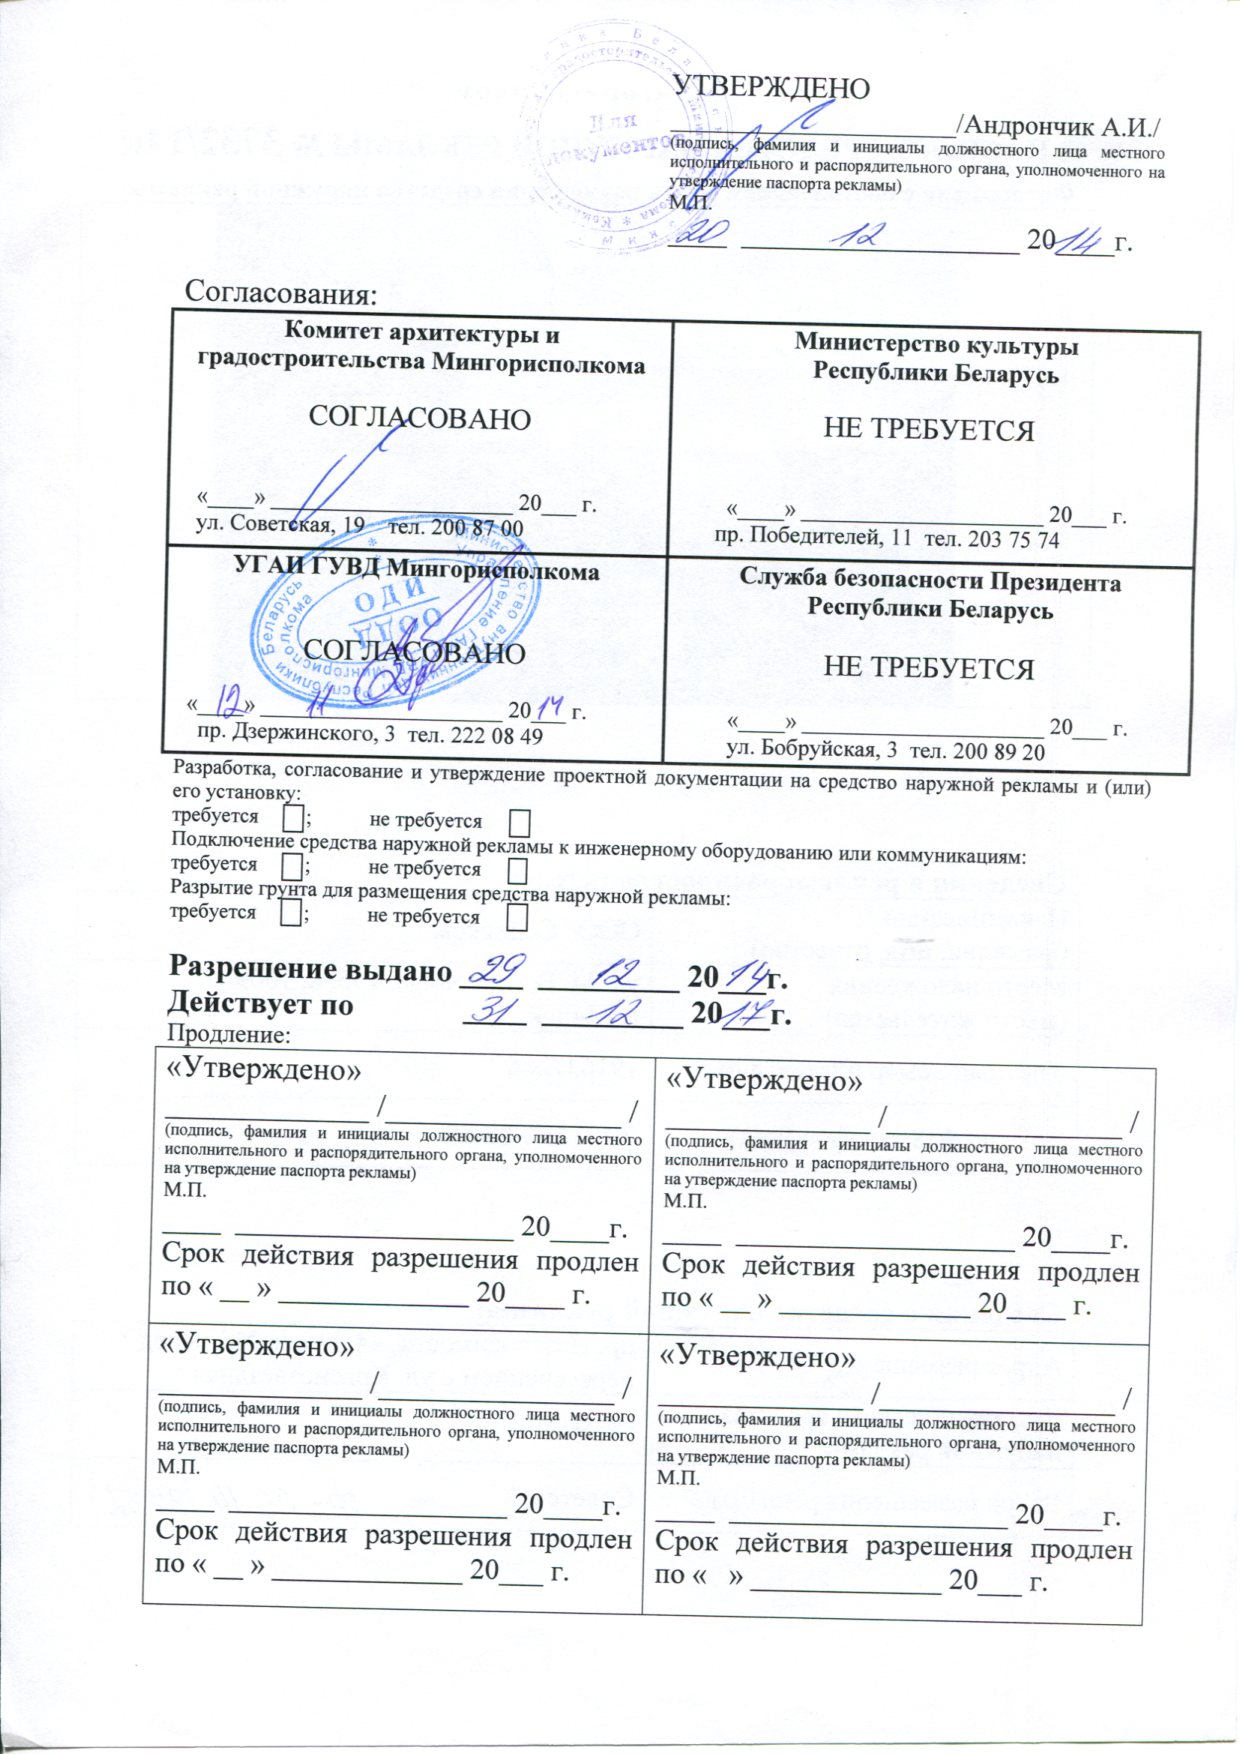 УТВЕРЖДЕНО
____________________/Андрончик А.И./
(подпись, фамилия и инициалы должностного лица местного
исполнительного и распорядительного органа, уполномоченного на
утверждение паспорта рекламы)
М.П.
20 12 2014 г.
Для
документов
Согласования:
Комитет архитектуры и
градостроительства Мингорисполкома
СОГЛАСОВАНО
«____» ____________________ 20___ г.
ул. Советская, 19 тел. 200 87 00
Министерство культуры
Республики Беларусь
НЕ ТРЕБУЕТСЯ
«____» ____________________ 20___ г.
пр. Победителей, 11 тел. 203 75 74
УГАИ ГУВД Мингорисполкома
ОДИ
ООДД
СОГЛАСОВАНО
«12» 11 2014 г.
пр. Дзержинского, 3 тел. 222 08 49
Служба безопасности Президента
Республики Беларусь
НЕ ТРЕБУЕТСЯ
«____» ____________________ 20___ г.
ул. Бобруйская, 3 тел. 200 89 20
Разработка, согласование и утверждение проектной документации на средство наружной рекламы и (или)
его установку:
требуется ; не требуется
Подключение средства наружной рекламы к инженерному оборудованию или коммуникациям:
требуется ; не требуется
Разрытие грунта для размещения средства наружной рекламы:
требуется ; не требуется
Разрешение выдано 29 12 2014г.
Действует по 31 12 2017г.
Продление:
«Утверждено»
______________ /________________ /
(подпись, фамилия и инициалы должностного лица местного
исполнительного и распорядительного органа, уполномоченного
на утверждение паспорта рекламы)
М.П.
____ ___________________ 20____г.
Срок действия разрешения продлен
по « __ » _____________ 20____ г.
«Утверждено»
______________ /________________ /
(подпись, фамилия и инициалы должностного лица местного
исполнительного и распорядительного органа, уполномоченного
на утверждение паспорта рекламы)
М.П.
____ ___________________ 20____г.
Срок действия разрешения продлен
по « __ » _____________ 20____ г.
«Утверждено»
______________ /________________ /
(подпись, фамилия и инициалы должностного лица местного
исполнительного и распорядительного органа, уполномоченного
на утверждение паспорта рекламы)
М.П.
____ ___________________ 20____г.
Срок действия разрешения продлен
по « __ » _____________ 20___ г.
«Утверждено»
______________ /________________ /
(подпись, фамилия и инициалы должностного лица местного
исполнительного и распорядительного органа, уполномоченного
на утверждение паспорта рекламы)
М.П.
____ ___________________ 20____г.
Срок действия разрешения продлен
по « » _____________ 20___ г.